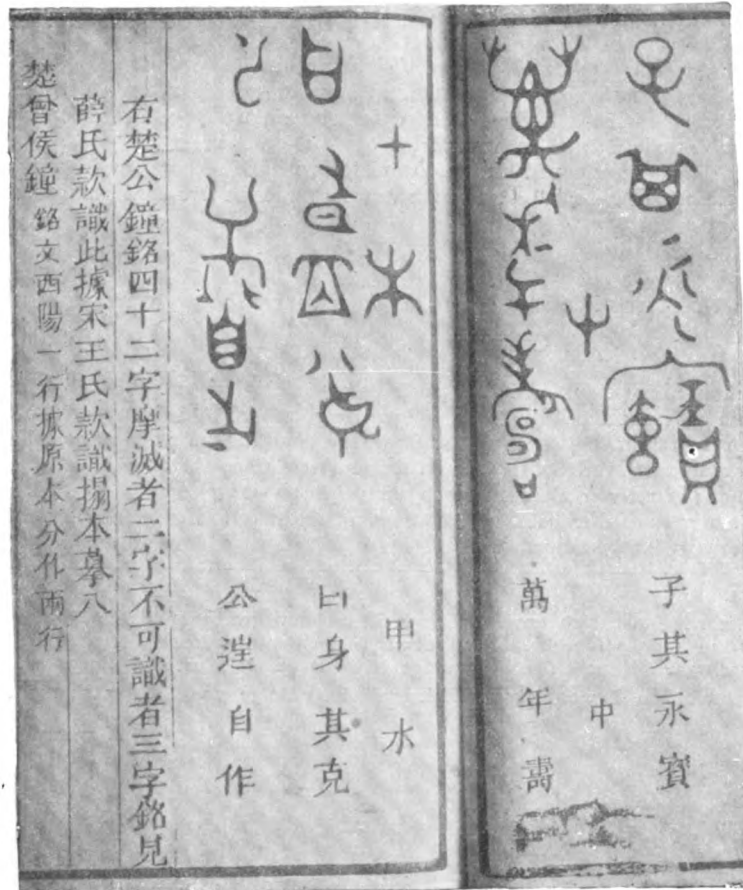 子其永寶
中
萬年壽
甲水
曰身其克
公逆自作
右楚公鐘銘四十二字摩滅者二字不可識者三字銘見
薛氏款識此據宋王氏款識搨本摹入
楚曾侯鐘 銘文西陽一行據原本分作兩行